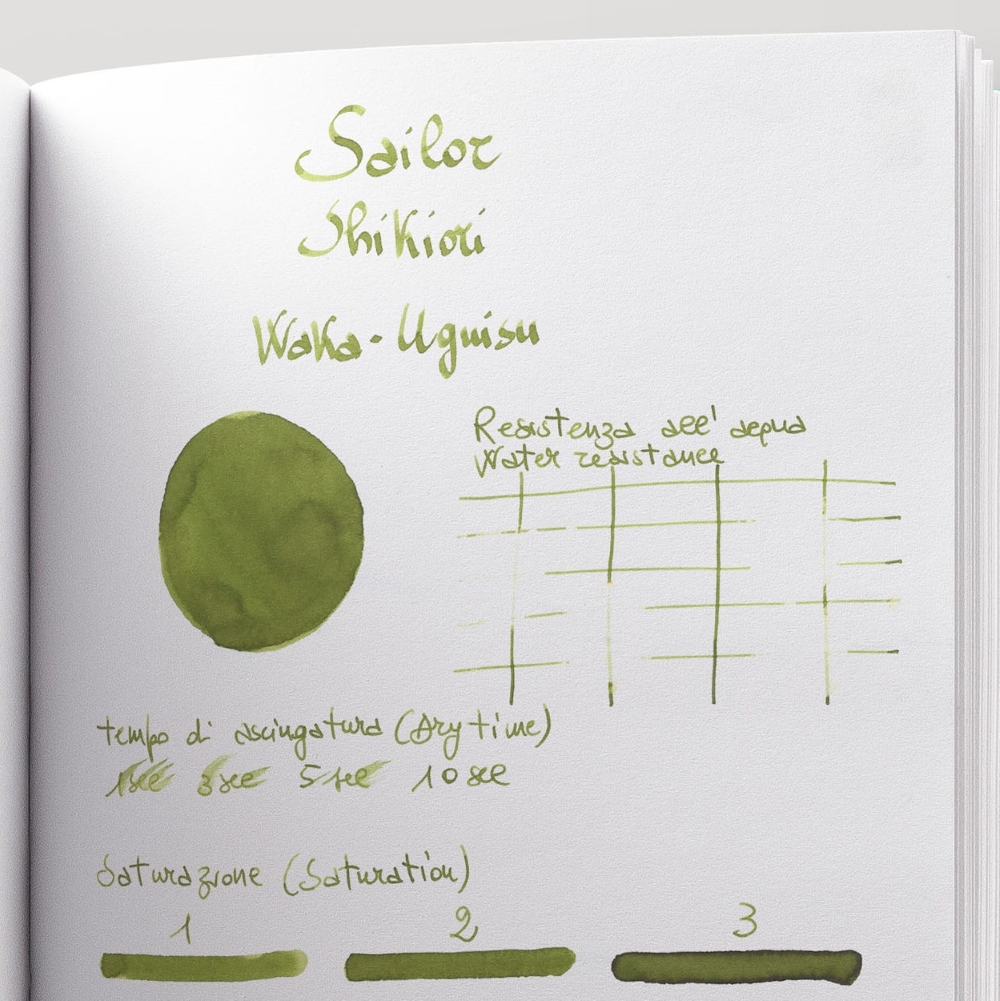 Sailor
Shikiori
Waka-Uguisu
Resistenza all'acqua
Water resistance
tempo di asciugatura (Dry time)
1 sec 3 sec 5 sec 10 sec
Saturazione (Saturation)
1 2 3